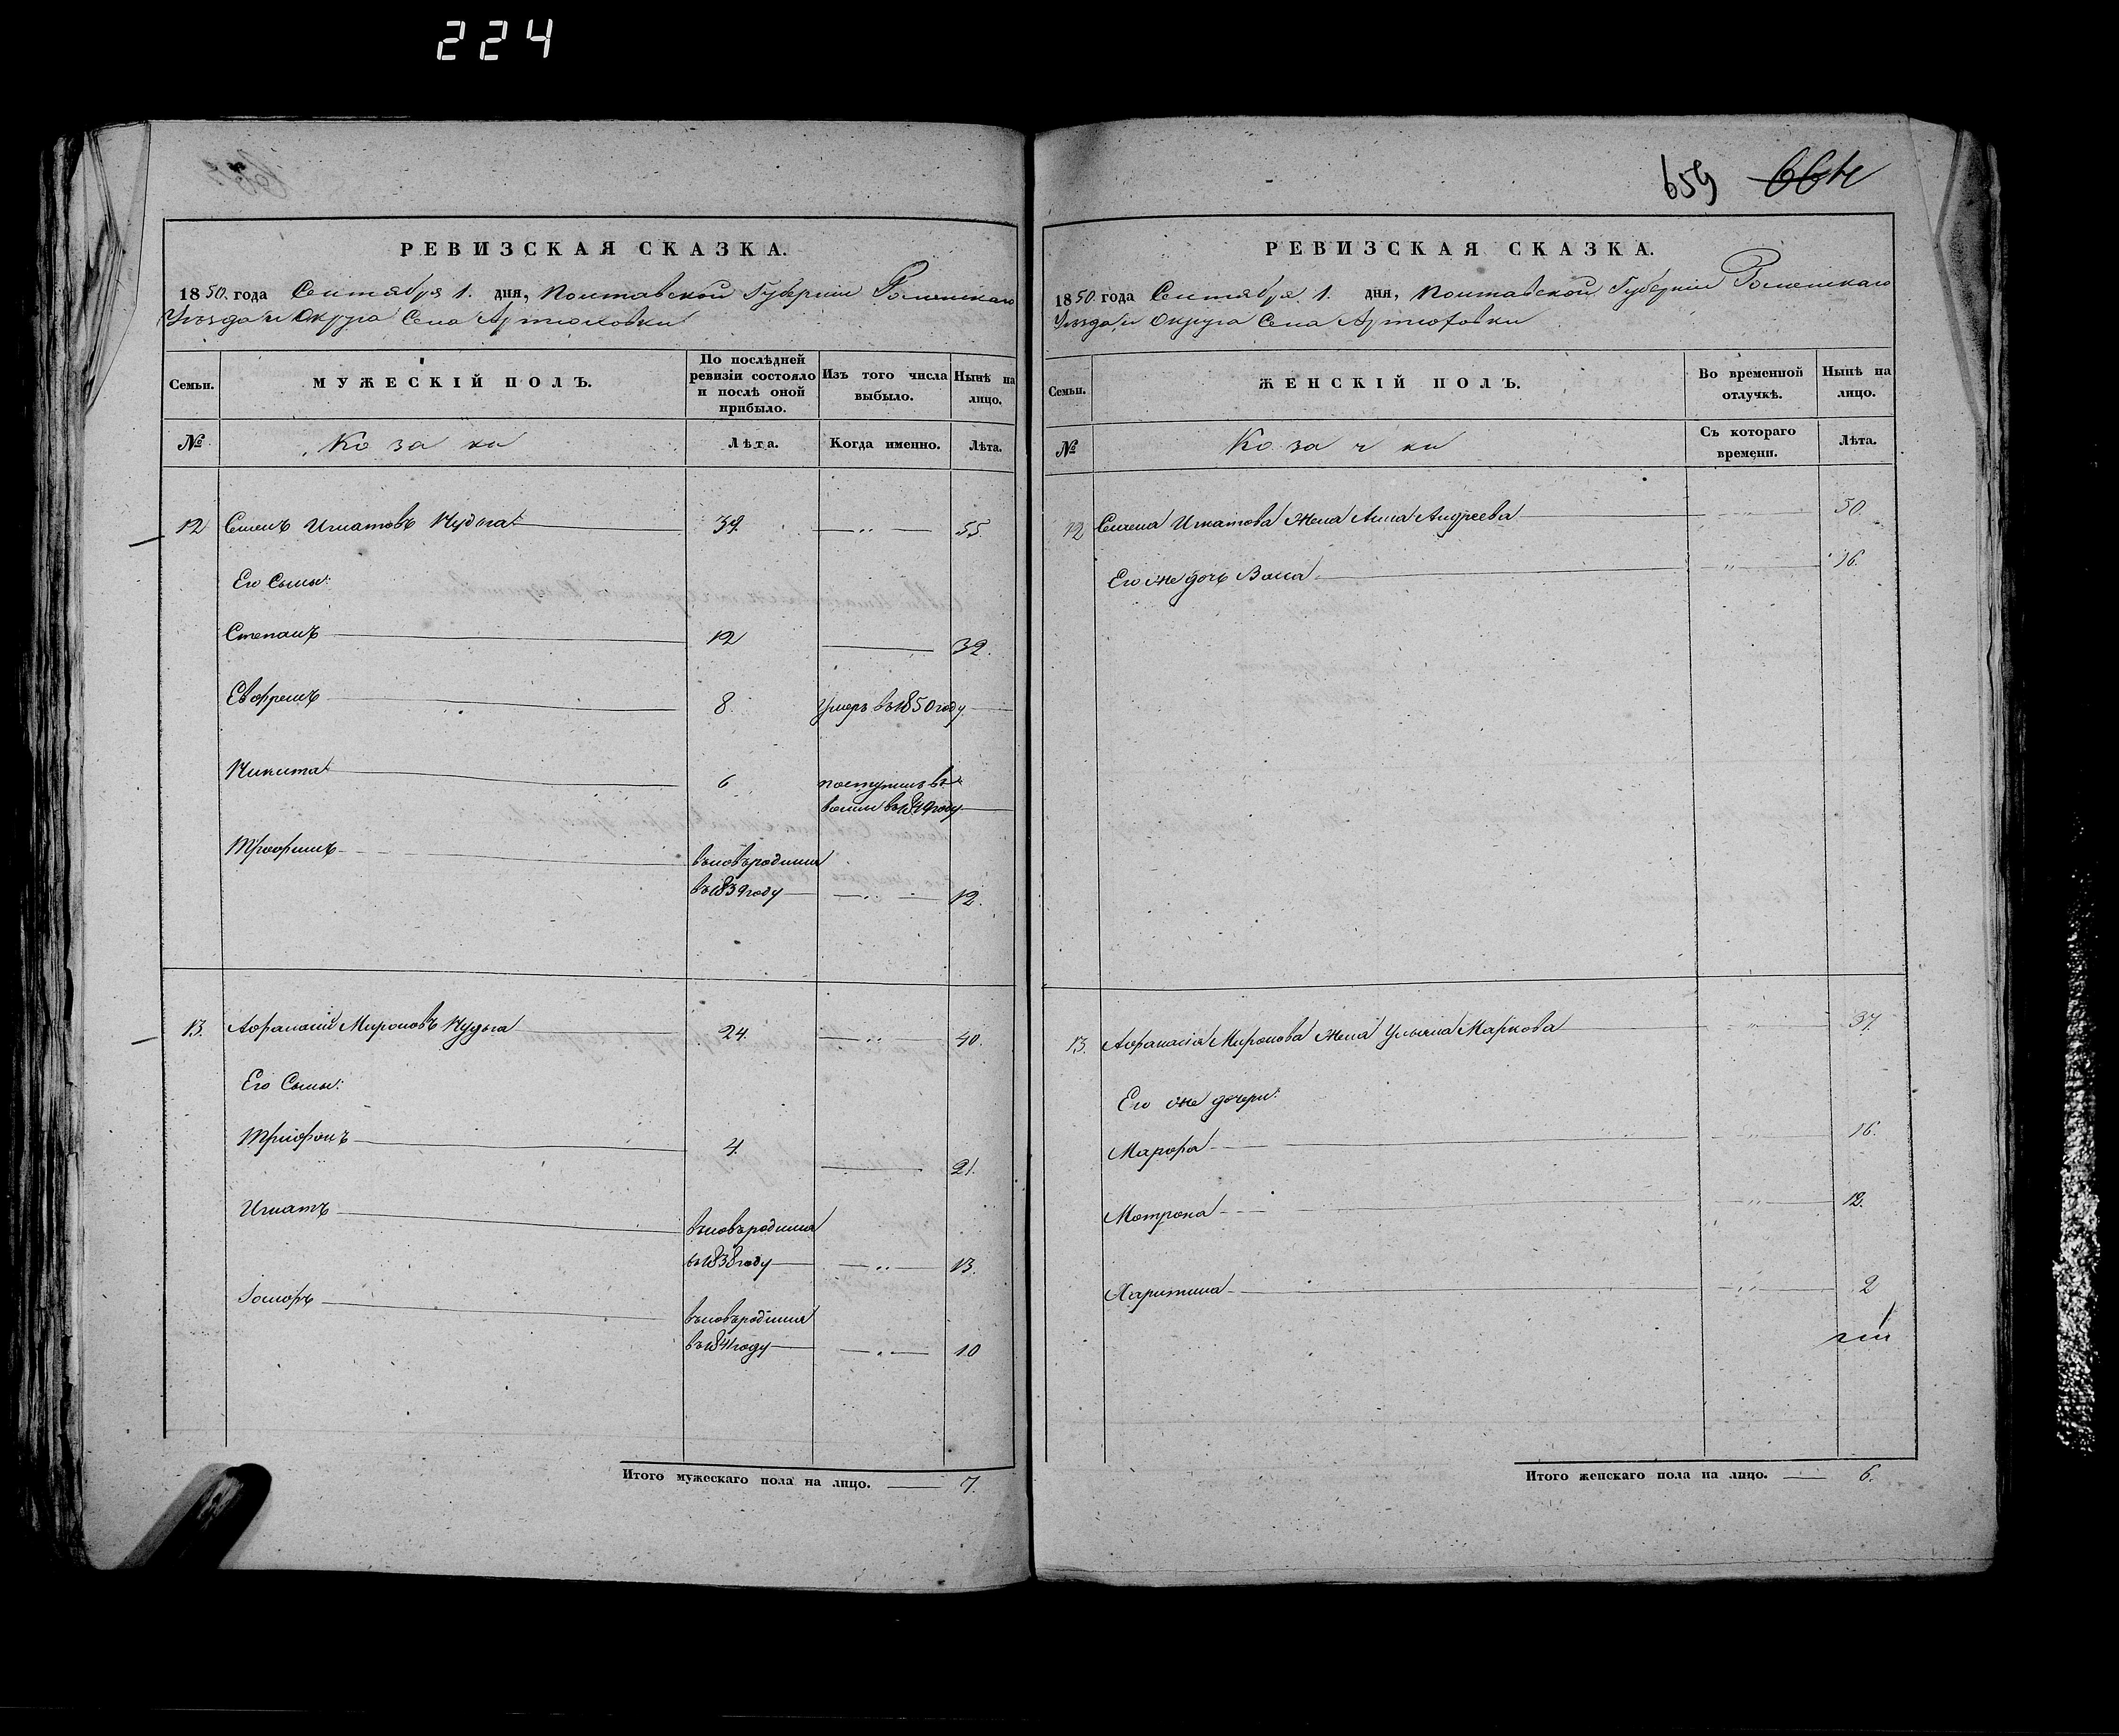 224
РЕВИЗСКАЯ СКАЗКА.
1850. года Сентября 1. дня, Полтавской Губернiи Роменскаго
Уѣзда и Округа Села Артюховки
Семьи.
МУЖЕСКIЙ ПОЛЪ.
По послѣдней ревизiи состояло и послѣ оной прибыло.
Изъ того числа выбыло.
Нынѣ на лицо.
№
Козаки
Лѣта.
Когда именно.
Лѣта.
12 Семенъ Игнатовъ Нудьга 39. 55.
Его Сыны:
Степанъ 12 32.
Евфремъ 8. умеръ въ 1850 году
Никита 6 поступилъ въ
въ 1849 году
Трофимъ вновьродился
въ 1839 году 12.
13. Афанасiй Мироновъ Нудьга 24. 40.
Его Сыны:
Трифонъ 4. 21.
Игнатъ вновьродился
въ 1838 году 13.
вновьродился
въ 1841 году 10
Итого мужескаго пола на лицо. 7.
659 664
РЕВИЗСКАЯ СКАЗКА.
1850 года Сентября 1. дня, Полтавской Губернiи Роменскаго
Уѣзда и Округа Села Артюховки
Семьи.
ЖЕНСКIЙ ПОЛЪ.
Во временной отлучкѣ.
Нынѣ на лицо.
№
Козачки
Съ котораго времени.
Лѣта.
12 Семена Игнатова жена Анна Андреева 50.
Его же дочь Васса 16.
13. Афанасiя Миронова жена Ульяна Маркова 37.
Его же дочери:
Марфа 16.
Мотрона 12.
Харитина 2
Итого женскаго пола на лицо. 6.